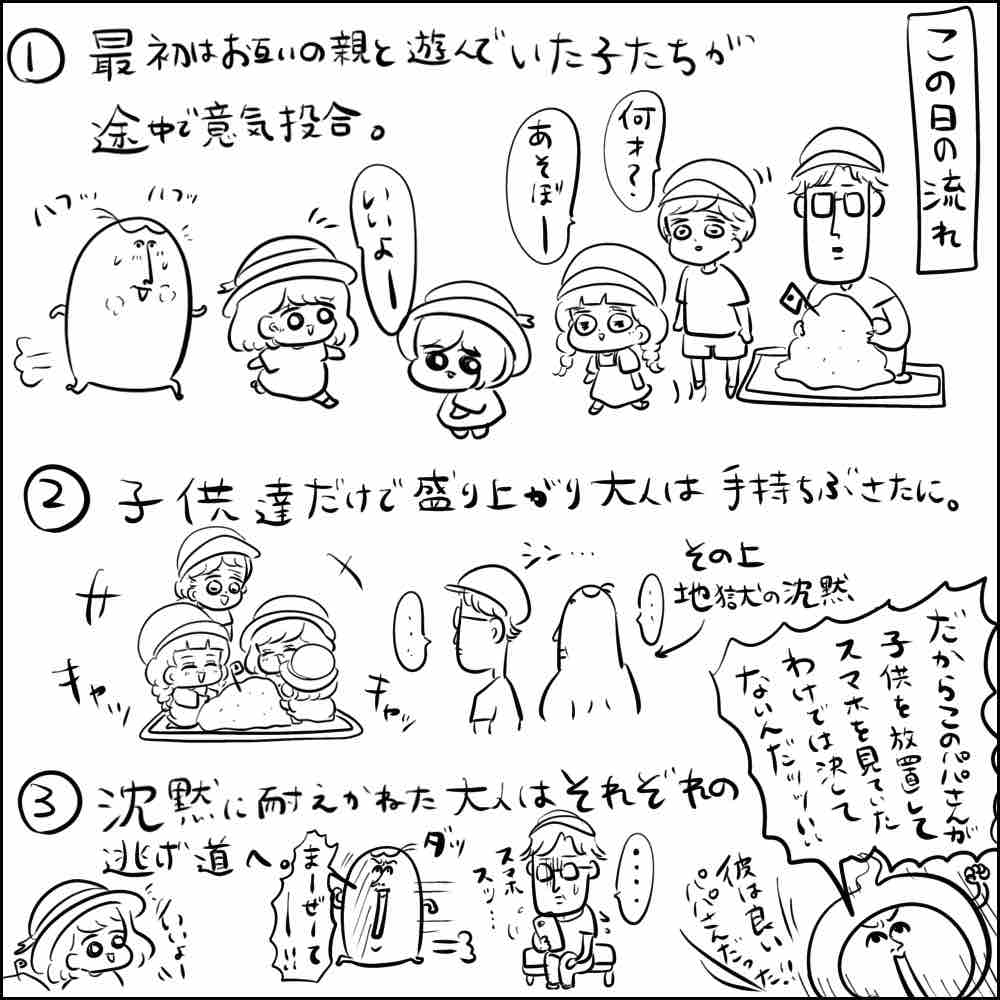 この日の流れ
① 最初はお互いの親と遊んでいた子たちが
途中で意気投合。
何才？
あそぼー
いいよー
ハフッ
ハフッ
② 子供達だけで盛り上がり大人は手持ちぶさたに。
シン…
その上
地獄の沈黙
…
…
キャッ
キャッ
だからこのパパさんが
子供を放置して
スマホを見ていた
わけでは決して
ないんだッッ!!
③ 沈黙に耐えかねた大人はそれぞれの
逃げ道へ。
ダッ
まーぜーてー!!
いいよー
スマホ
スッ…
・・・・
彼は良い
パパさんだった!!